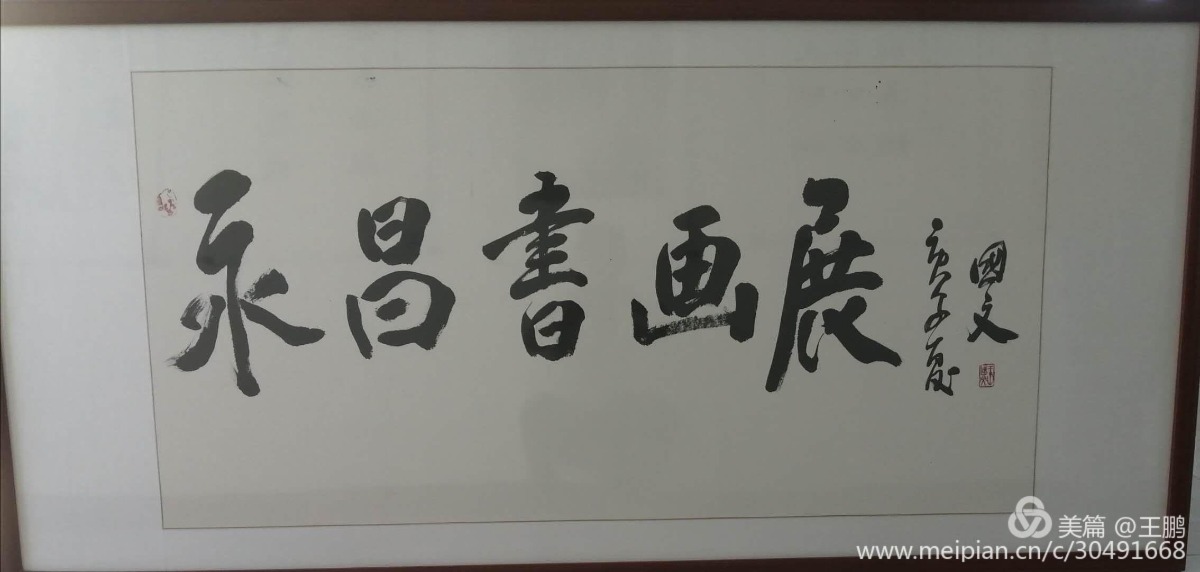 永昌書画展
庚子夏
國文
美篇 @王鹏
www.meipian.cn/c/30491668